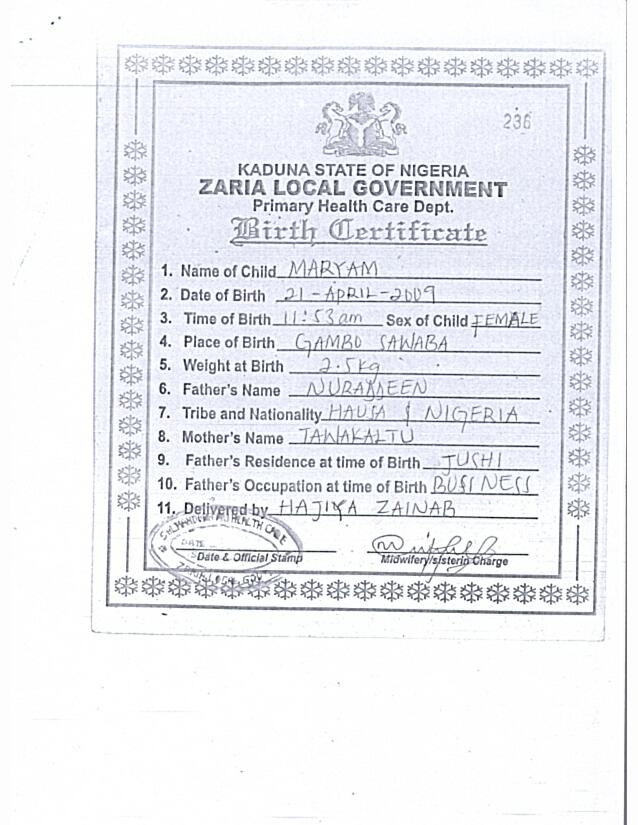 236
KADUNA STATE OF NIGERIA
ZARIA LOCAL GOVERNMENT
Primary Health Care Dept.
Birth Certificate
1. Name of Child MARYAM
2. Date of Birth 21-APRIL-2009
3. Time of Birth 11:53am Sex of Child FEMALE
4. Place of Birth GAMBO SAWABA
5. Weight at Birth 2.5kg
6. Father's Name NURADEEN
7. Tribe and Nationality HAUSA & NIGERIA
8. Mother's Name TAWAKALTU
9. Father's Residence at time of Birth JUSHI
10. Father's Occupation at time of Birth BUSINESS
11. Delivered by HAJIYA ZAINAB
HEALTH CARE
DATE
Date & Official Stamp Midwifery/sisterin Charge